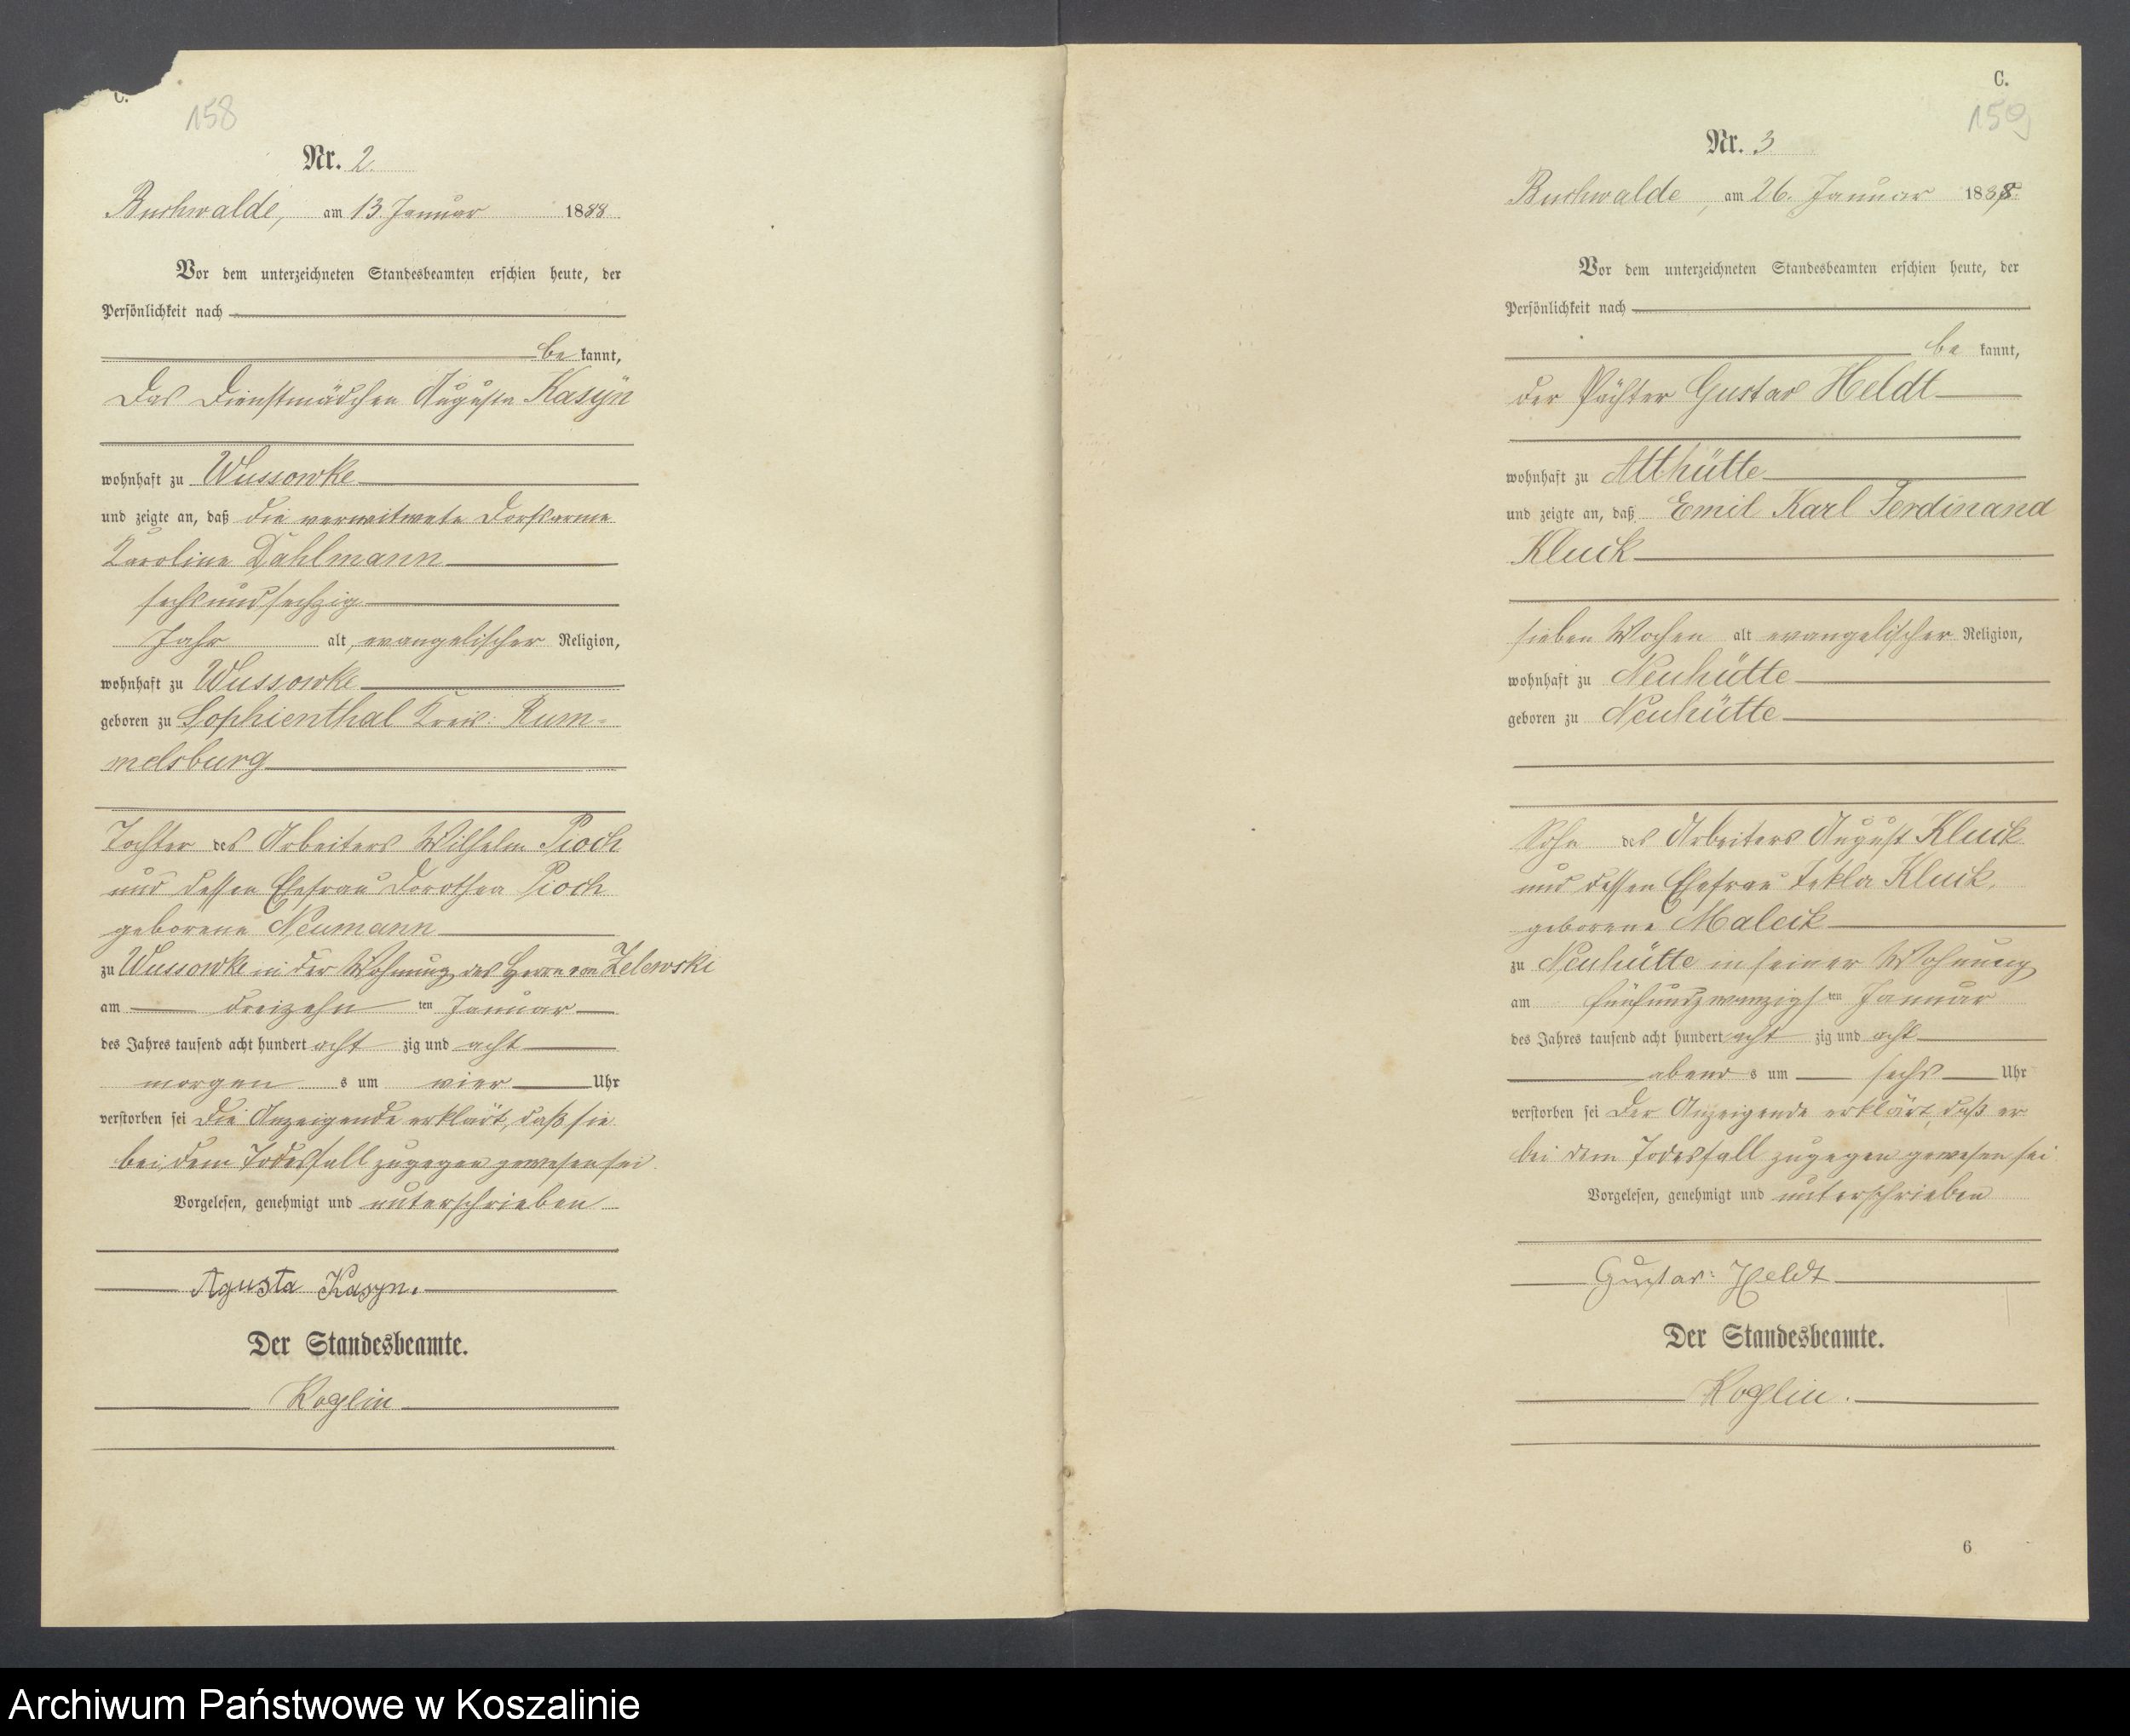 C.
158
Nr. 2.
Buchwalde, am 13. Januar 1888
Vor dem unterzeichneten Standesbeamten erschien heute, der
Persönlichkeit nach
be kannt,
das Dienstmädchen Auguste Kasÿn
wohnhaft zu Wussowke
und zeigte an, daß die verwitwete Dorfsarme
Karoline Dahlmann
sechsundsechzig
Jahr alt, evangelischer Religion,
wohnhaft zu Wussowke
geboren zu Sophienthal Kreis: Rum-
melsburg
Tochter des Arbeiters Wilhelm Pioch
und dessen Ehefrau Dorothea Pioch
geborene Neumann
zu Wussowke in der Wohnung des Herrn von Zelewski
am dreizehn ten Januar
des Jahres tausend acht hundert acht zig und acht
morgen s um vier Uhr
verstorben sei Die Anzeigende erklärt, daß sie
bei dem Todesfall zugegen gewesen sei.
Vorgelesen, genehmigt und unterschrieben
Agusta Kasyn.
Der Standesbeamte.
Koglin
C.
159
Nr. 3
Buchwalde, am 26. Januar 1888.
Vor dem unterzeichneten Standesbeamten erschien heute, der
Persönlichkeit nach
be kannt,
der Pächter Gustav Heldt
wohnhaft zu Althütte
und zeigte an, daß Emil Karl Ferdinand
Kluck
sieben Wochen alt evangelischer Religion,
wohnhaft zu Neuhütte
geboren zu Neuhütte
Sohn des Arbeiters August Kluck
und dessen Ehefrau Tekla Kluck,
geborene Malcik
zu Neuhütte in seiner Wohnung
am fünfundzwanzigs ten Januar
des Jahres tausend acht hundert acht zig und acht
abend s um sechs Uhr
verstorben sei Der Anzeigende erklärt, daß er
bei dem Todesfall zugegen gewesen sei
Vorgelesen, genehmigt und unterschrieben
Gustav Heldt
Der Standesbeamte.
Koglin.
6
Archiwum Państwowe w Koszalinie